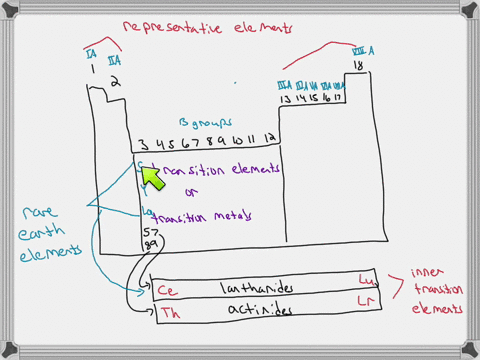 representative elements
IA
IIA
VIII A
1
2
18
IIIA IVA VA VIA VIIA
13 14 15 16 17
B groups
3 4 5 6 7 8 9 10 11 12
transition elements
Y
or
La
transition metals
57
89
rare
earth
elements
Ce lanthanides Lu
Th actinides Lr
inner
transition
elements